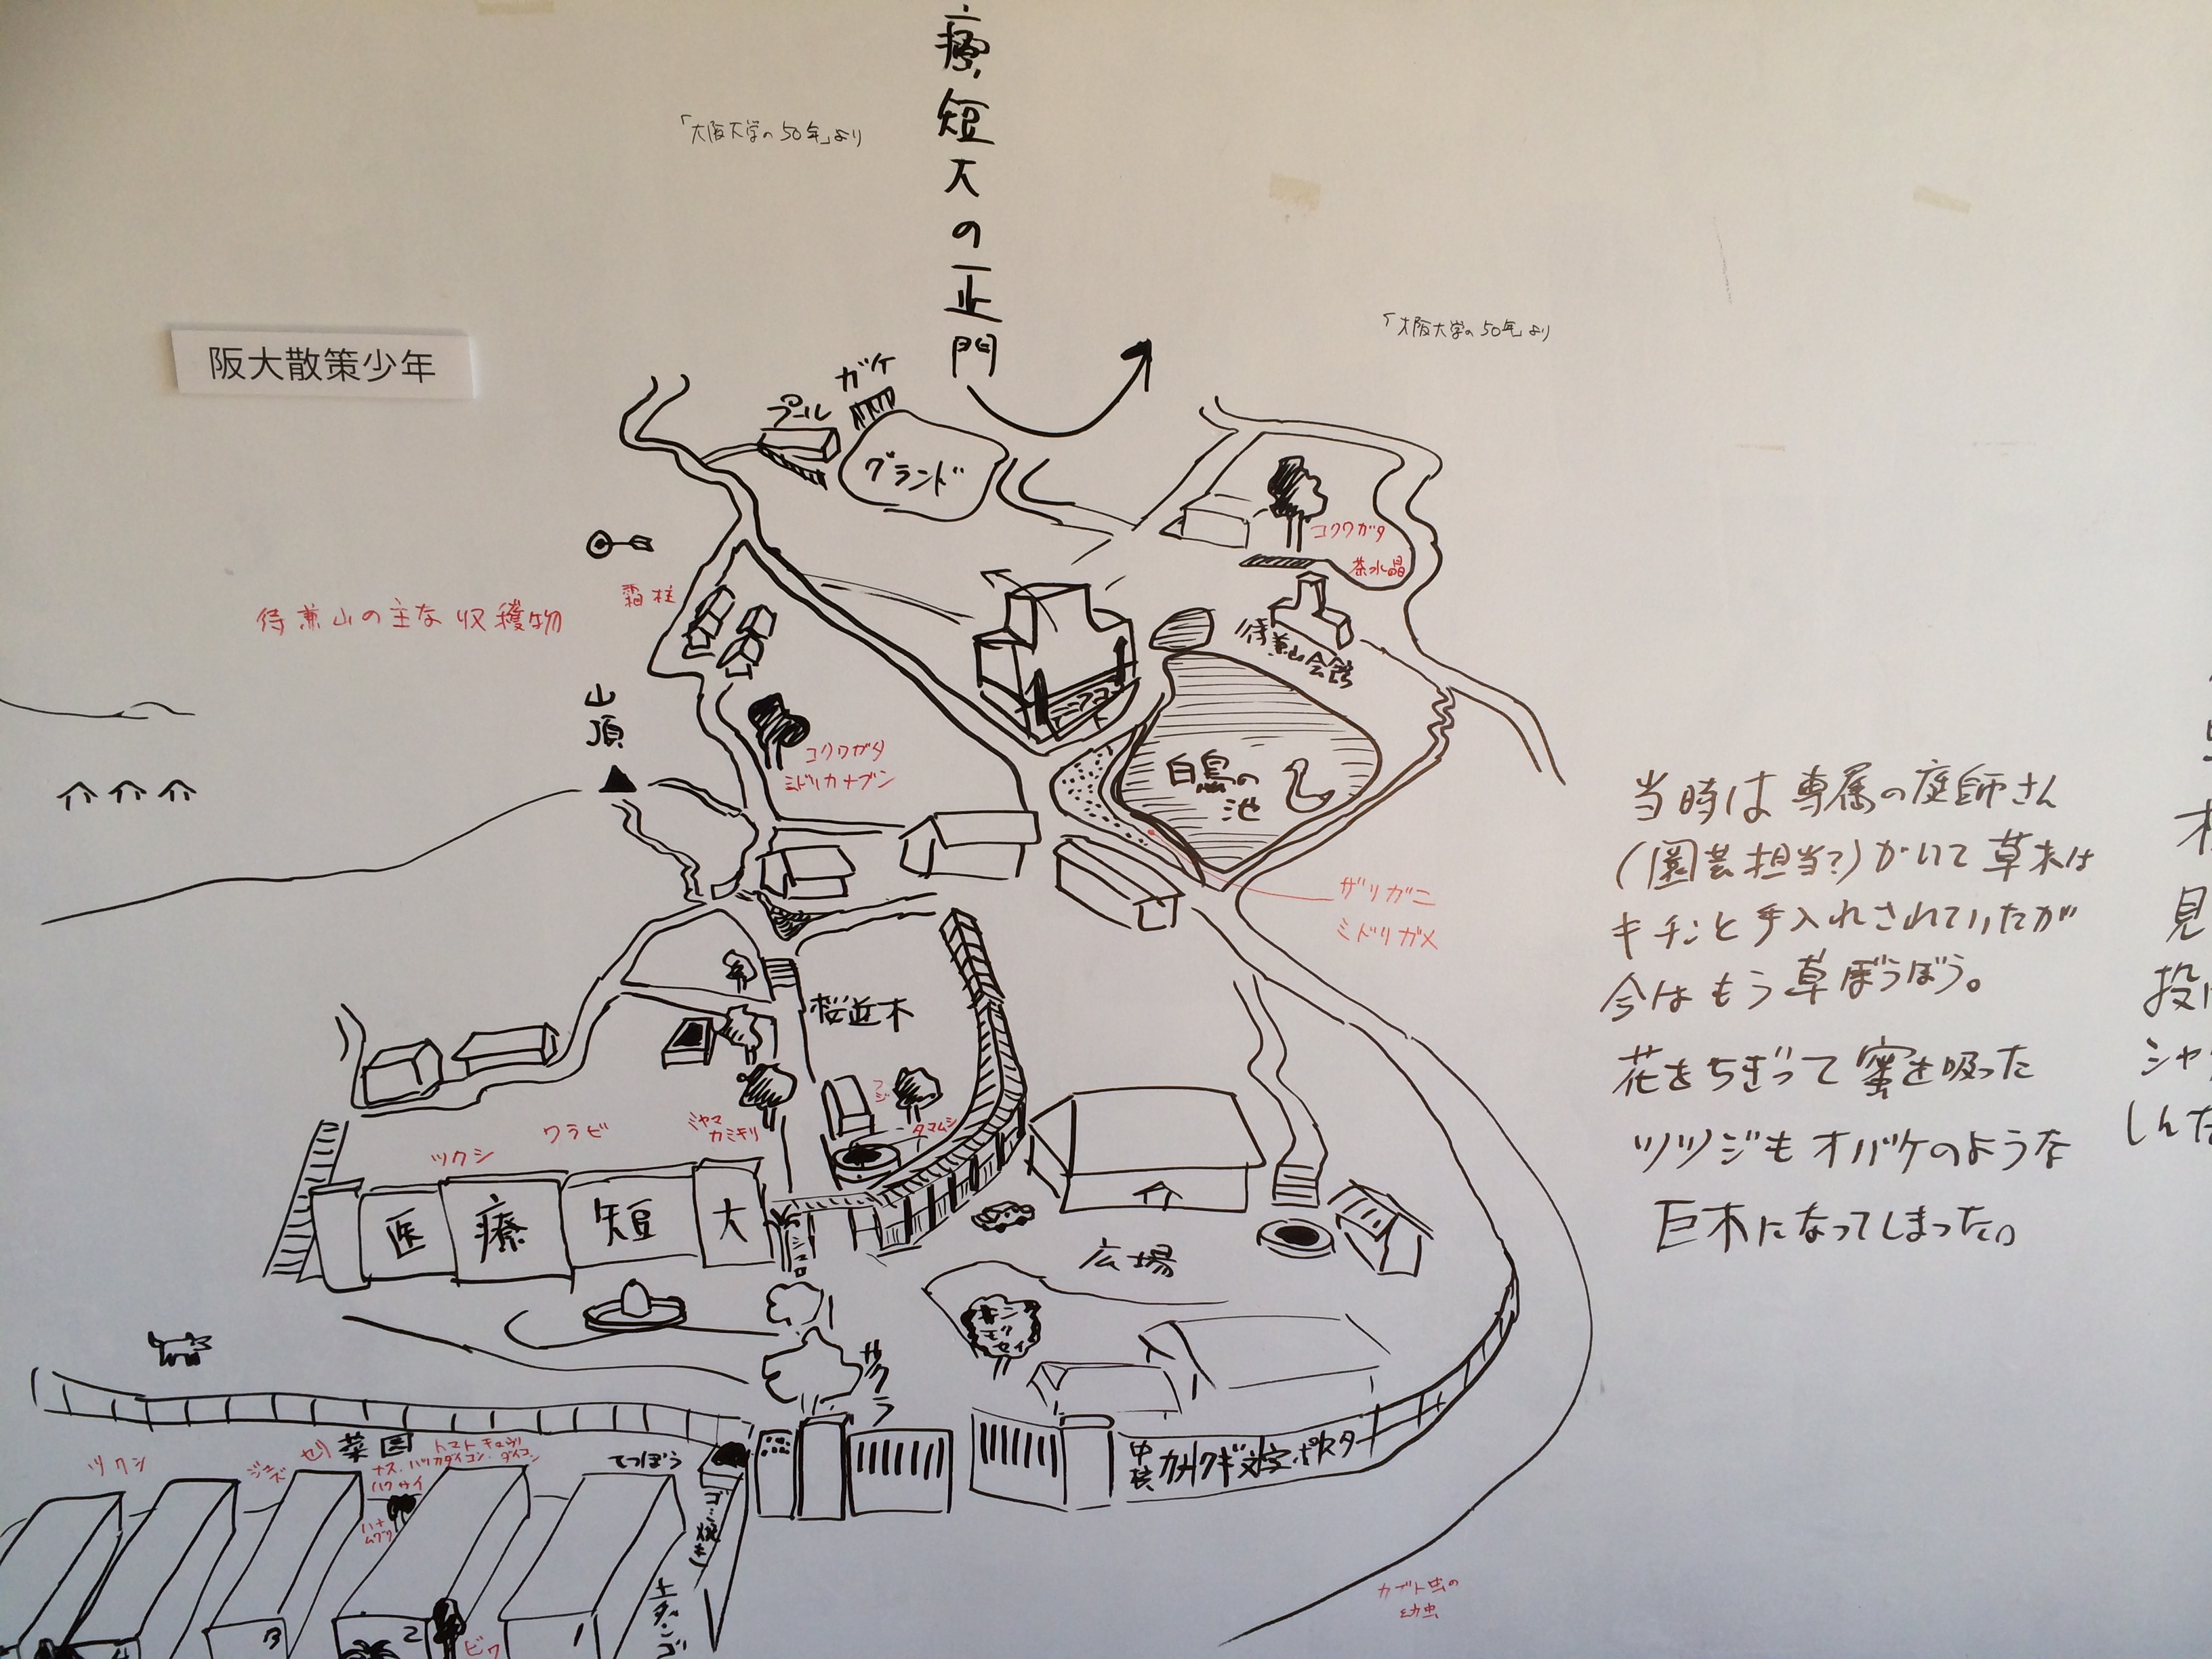 療短大の正門
「大阪大学の50年」より
「大阪大学の50年」より
阪大散策少年
ガケ
プール
グランド
コクワガタ
茶水晶
待兼山の主な収穫物
霜柱
待兼山会館
山頂
コクワガタ
ミドリカナブン
白鳥の
池
ザリガニ
ミドリガメ
当時は専属の庭師さん
(園芸担当?)がいて草木は
キチンと手入れされていたが
今はもう草ぼうぼう。
花をちぎって蜜を吸った
ツツジもオバケのような
巨木になってしまった。
見
投
シャ
しんだ
桜並木
フジ
タマムシ
ミヤマ
カミキリ
ワラビ
ツクシ
医療短大
広場
キンモクセイ
サクラ
中核カクカクギ文字ポスター
ツクシ
セリ
菜園
トマト、キュウリ
ナス、ハツカダイコン、ダイコン
ハクサイ
ハナ
ムグリ
てつぼう
ゴミ焼き
土ダンゴ
3
2
1
ビワ
カブト虫の
幼虫